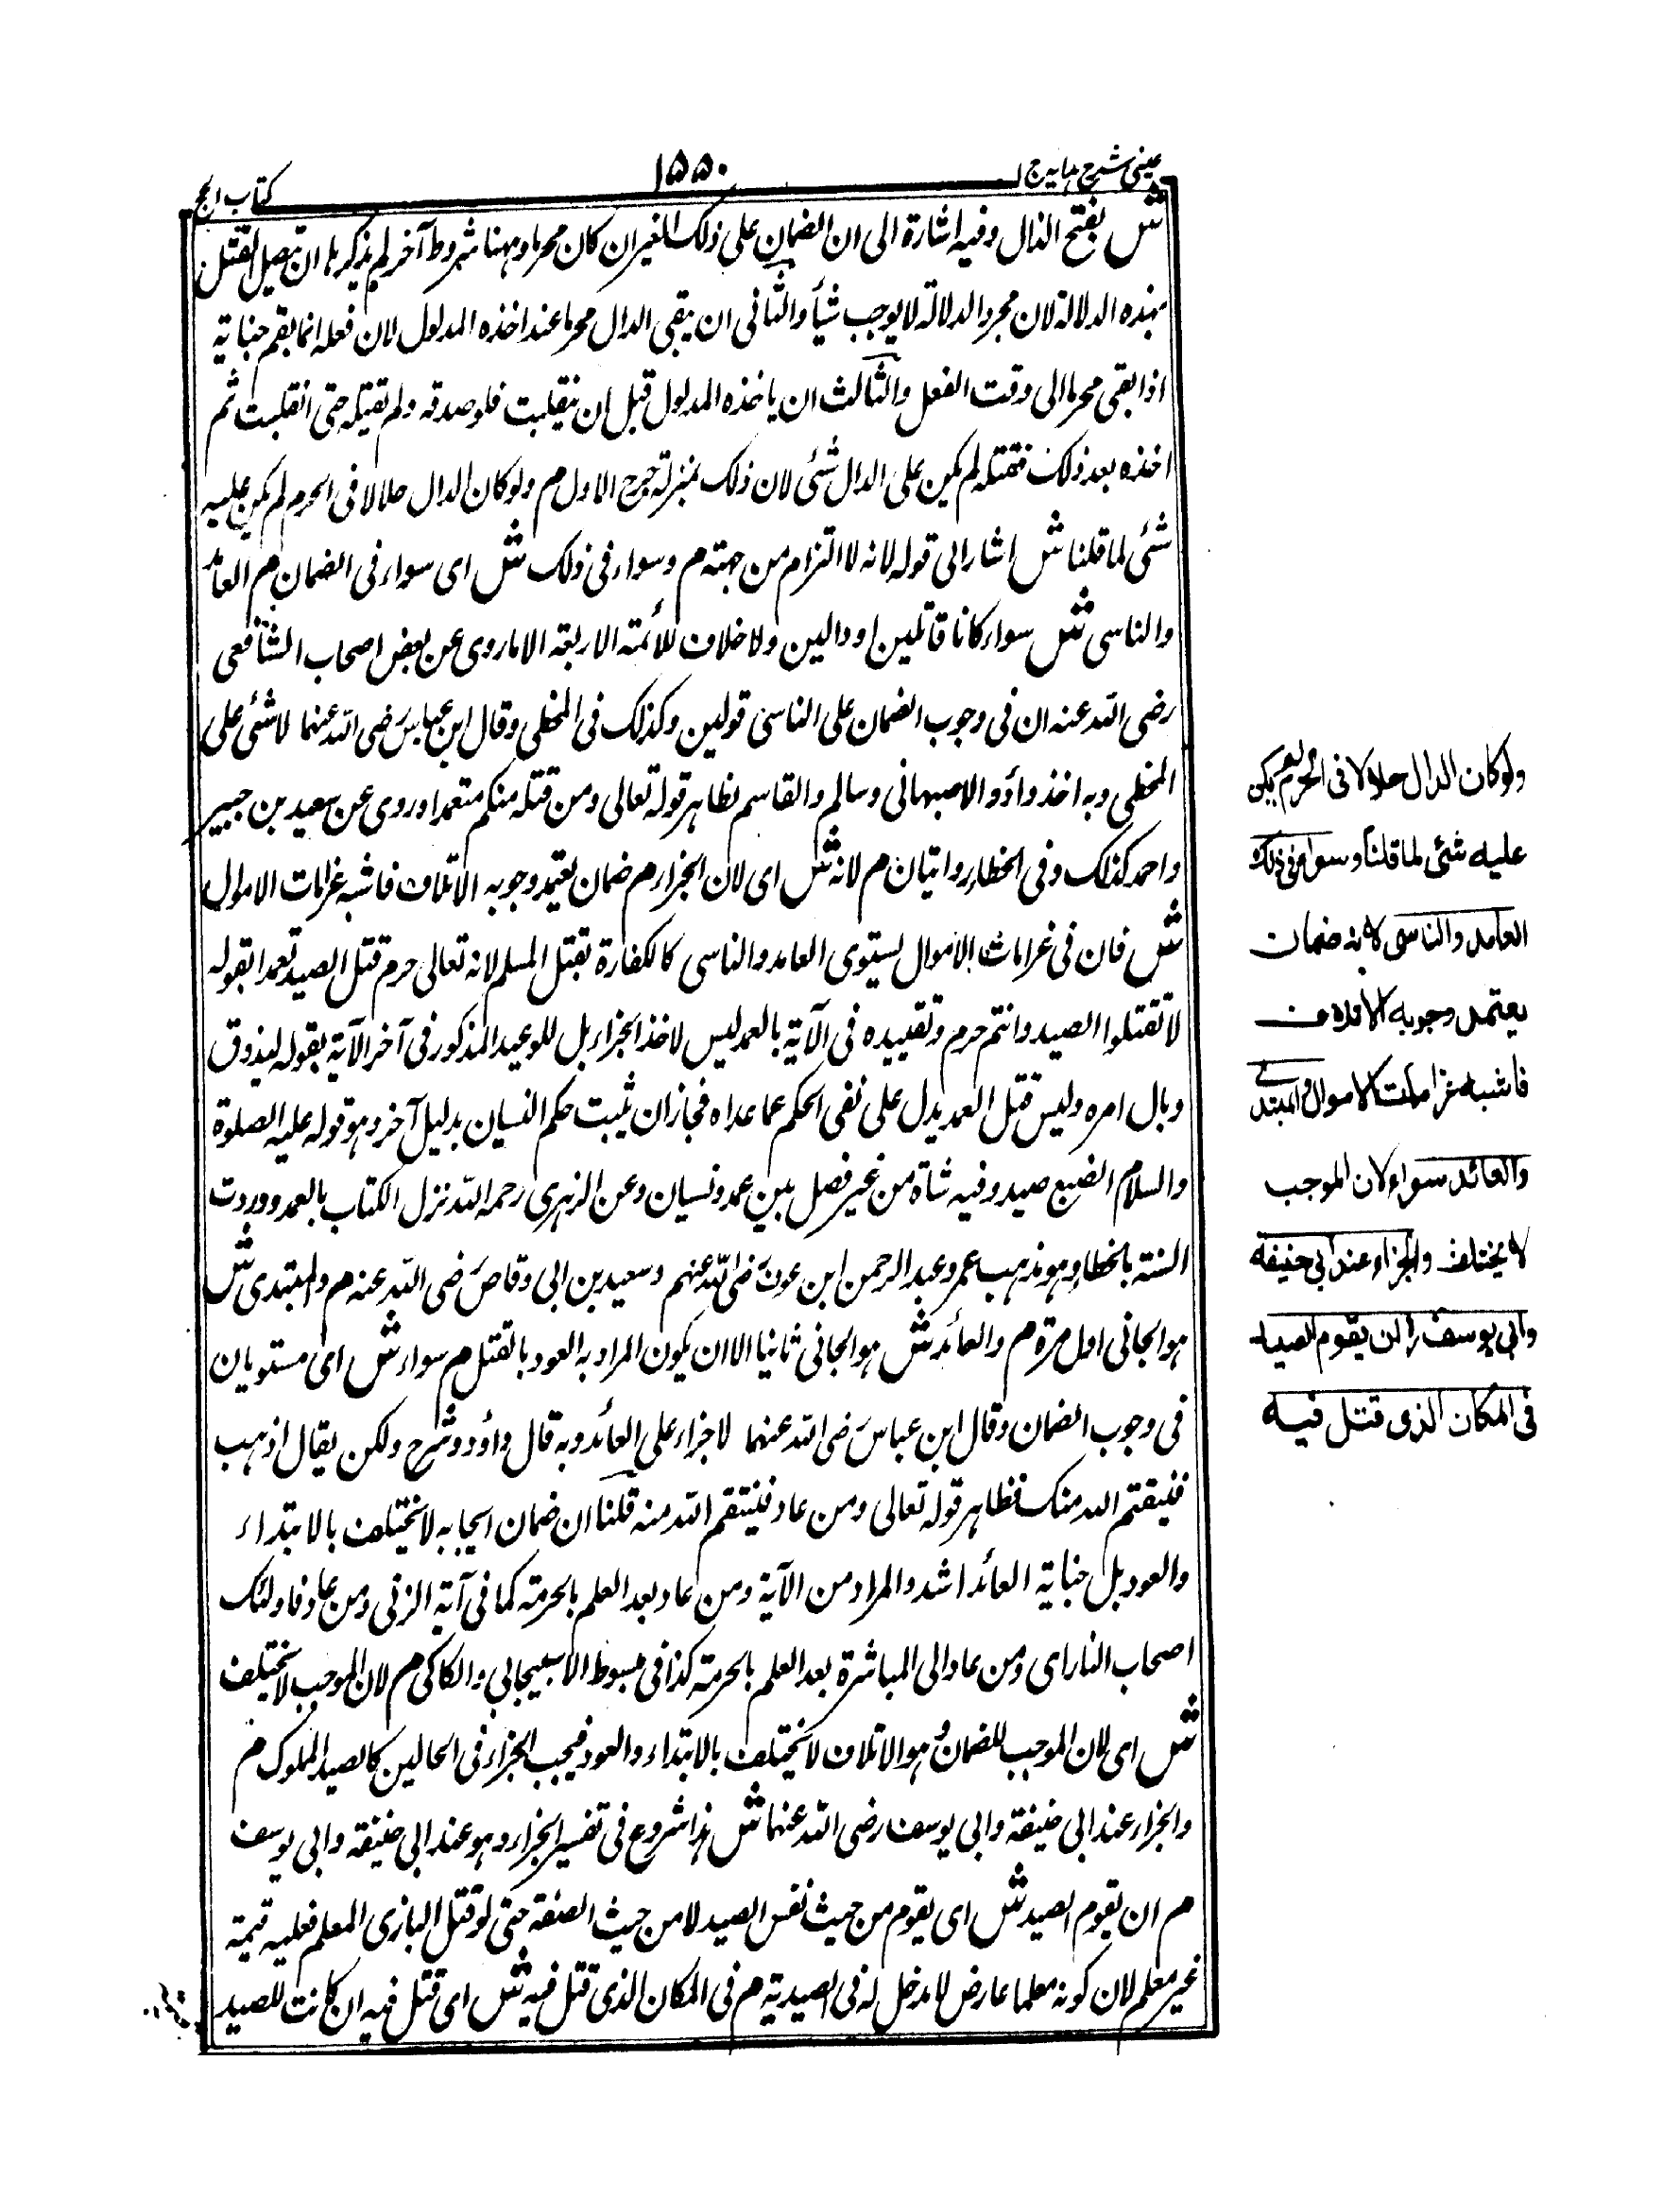 عینی شرح ہدایہ ج ١
١٥٥٠
کتاب الحج
ش بفتح الدال وفیه اشارة الی ان الضمان علی ذلک الغیر ان کان محرما وههنا شروط آخر لم یذکرها ان یتصل القتل
بهذه الدلالة لان مجرد الدلالة لا یوجب شیأ والثانی ان یبقی الدال محرما عند اخذه المدلول لان فعله انما یتم جنایة
اذا بقی محرما الی وقت الفعل والثالث ان یاخذه المدلول قبل ان ینقلبت فلو صدقه ولم یقتله حتی انقلبت ثم
اخذه بعد ذلک فقتله لم یکن علی الدال شئی لان ذلک بمنزلة جرح الاول م ولو کان الدال حلالا فی الحرم لم یکن علیه
شئی لما قلنا ش اشار الی قوله لانه لا التزام من جهته م وسواء فی ذلک ش ای سواء فی الضمان م العامد
والناسی ش سواء کانا قاتلین او دالین ولا خلاف للأئمة الاربعة الا ما روی عن بعض اصحاب الشافعی
رضی الله عنه ان فی وجوب الضمان علی الناسی قولین وکذلک فی المخطی وقال ابن عباس رضی الله عنهما لا شئی علی
المخطی وبه اخذ داؤد الاصبهانی وسالم والقاسم لظاهر قوله تعالی ومن قتله منکم متعمدا وروی عن سعید بن جبیر
واحمد کذلک وفی الخطاء روایتان م لانه ش ای لان الجزاء م ضمان یعتمد وجوبه الاتلاف فاشبه غرامات الاموال
ش فان فی غرامات الاموال یستوی العامد والناسی کالکفارة بقتل المسلم لانه تعالی حرم قتل الصید تعمدا بقوله
لا تقتلوا الصید وانتم حرم وتقییده فی الآیة بالعمد لیس لاخذ الجزاء بل للوعید المذکور فی آخر الآیة بقوله لیذوق
وبال امره ولیس قتل العمد یدل علی نفی الحکم عما عداه فجاز ان یثبت حکم النسیان بدلیل آخر وهو قوله علیه الصلوة
والسلام الضبع صید وفیه شاة من غیر فصل بین عمد ونسیان وعن الزهری رحمه الله نزل الکتاب بالعمد ووردت
السنة بالخطا وهو مذهب عمر وعبد الرحمن ابن عوف رضی الله عنهم وسعید بن ابی وقاص رضی الله عنه م والمبتدی ش
هو الجانی اول مرة م والعائد ش هو الجانی ثانیا الا ان یکون المراد به العود بالقتل م سواء ش ای مستویان
فی وجوب الضمان وقال ابن عباس رضی الله عنهما لا جزاء علی العائد وبه قال داؤد وشرح ولکن یقال اذهب
فینتقم الله منک لظاهر قوله تعالی ومن عاد فینتقم الله منه قلنا ان ضمان ایجابه لا یختلف بالابتداء
والعود بل جنایة العائد اشد والمراد من الآیة ومن عاد بعد العلم بالحرمة کما فی آیة الربی ومن عاد فاولئک
اصحاب النار ای ومن عاد الی المباشرة بعد العلم بالحرمة کذا فی مبسوط الاسبیجابی والکاکی م لان الموجب لا یختلف
ش ای لان الموجب للضمان وهو الاتلاف لا یختلف بالابتداء والعود فیجب الجزاء فی الحالین کالصید المملوک م
والجزاء عند ابی حنیفة وابی یوسف رضی الله عنهما ش هذا شروع فی تفسیر الجزاء وهو عند ابی حنیفة وابی یوسف
م ان یقوم الصید ش ای یقوم من حیث نفس الصید لا من حیث الصفة حتی لو قتل البازی المعلم فعلیه قیمة
غیر معلم لان کونه معلما عارض لا مدخل له فی الصیدیة م فی المکان الذی قتل فیه ش ای قتل فیه ان کانت للصید
ولو کان الدال حلالا فی الحرم لم یکن
علیه شئی لما قلنا وسواء فی ذلک
العامد والناسی لانه ضمان
یعتمد وجوبه الاتلاف
فاشبه غرامات الاموال والمبتدی
والعائد سواء لان الموجب
لا یختلف والجزاء عند ابی حنیفه
وابی یوسف رح ان یقوم الصید
فی المکان الذی قتل فیه